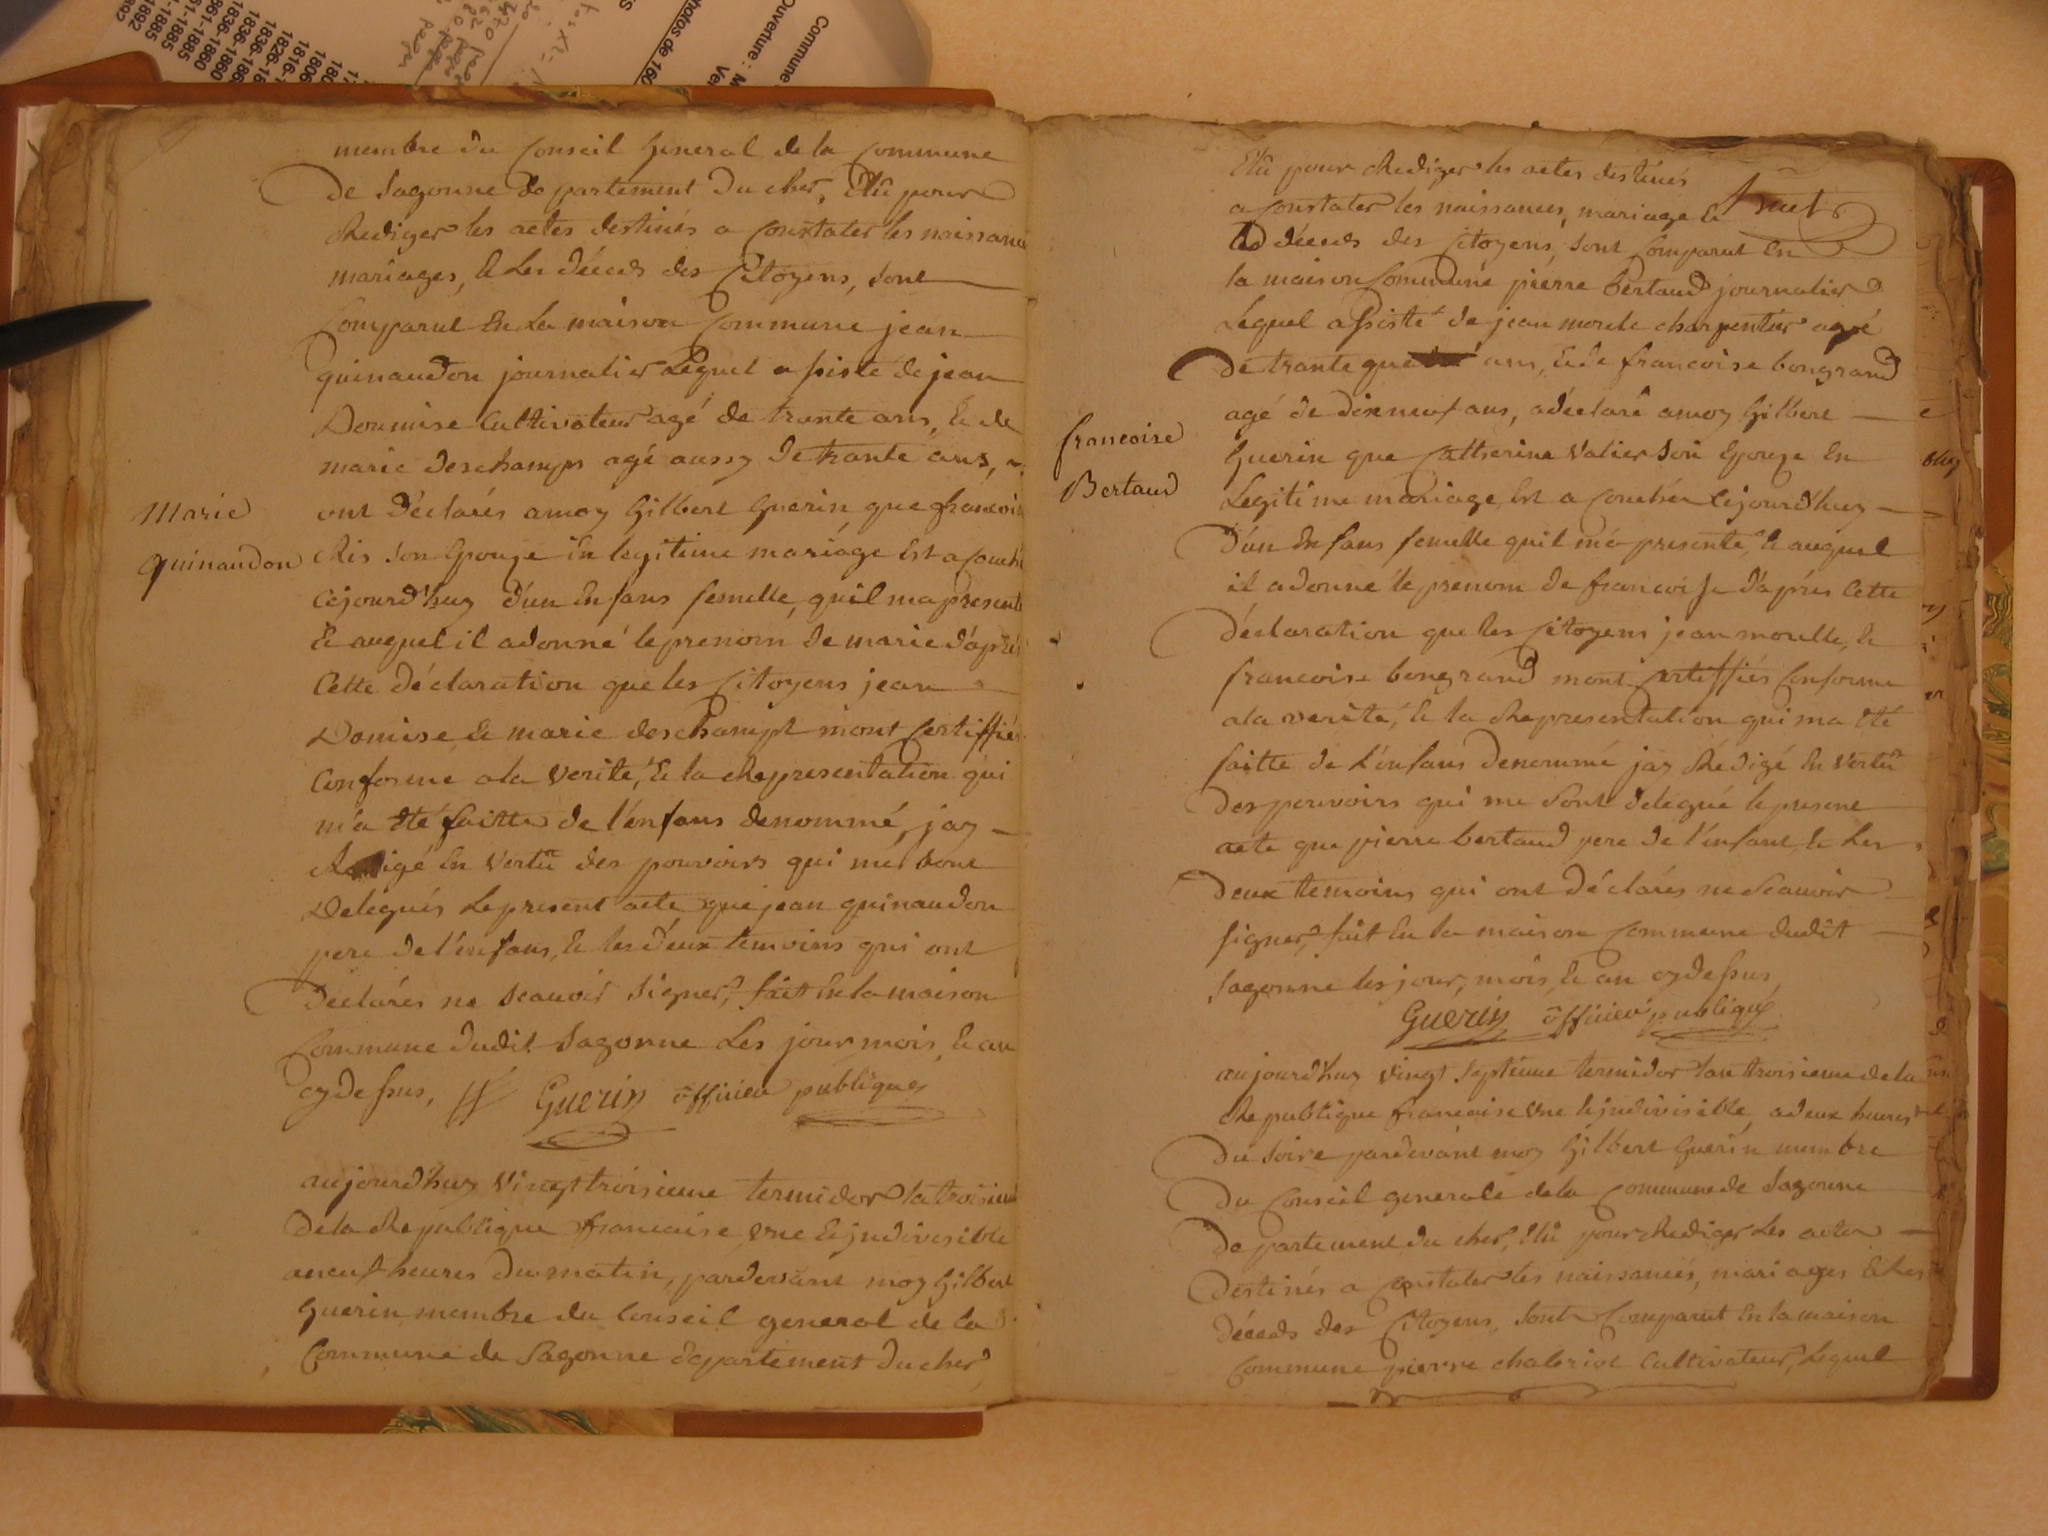 membre du Conseil General de la Commune
de Sagonne departement du cher, Elû pour
Rediger les actes destinés a Constater les naissance
mariages, & Les déceds des Citoyens, sont
Comparut En La maison Commune jean
guinaudon journalier Lequel assisté de jean
Doumise Cultivateur agé de trante ans, & de
marie deschamps agé aussy de trante ans,
Marie
quinaudon
ont déclarés a moy Gilbert Guerin que francois
Ris son Epouze En legitime mariage Est acouché
Cejourd'huy d'un Enfans femelle, quil ma presenté
& auquel il a donné le prenom de marie d'aprés
Cette déclaration que les Citoyens jean
Domise & marie deschampt mont Certiffiés
Conforme a la verité, & la Representation qui
m'a Eté faitte de l'enfans denommé, jay
Redigé En vertû des pouvoirs qui me sont
Delegués Le present acte que jean guinaudon
pere de l'enfans, & les deux temoins qui ont
Declarés ne scauoir signer, fait En la maison
Commune dudit Sagonne Les jour mois, & an
cy dessus, Guerin officier publique
aujourd'huy vingt troisieme termidor la troisieme
de la Republique francaise, une & jndivisible
a neuf heures du matin, pardevant moy Gilbert
Guerin membre du Conseil general de la
Commune de Sagonne departement du cher,
Elû pour Rediger les actes destinés
a Constater les naissances, mariage &
déceds des Citoyens, sont Comparut En
la maison Commune pierre Bertaud journalier
Lequel assisté de jean morele charpentier agé
De trante que ans, & de francoise bongrand
agé de dixneuf ans, a déclaré a moy Gilbert
francoise
Bertaud
Guerin que Catherine Valier son Epouze En
Legitime mariage, Est a Couchée Cejourd'huy
D'un Enfans femelle quil m'a presenté & auquel
il a donné le prenom de francoise d'aprés Cette
déclaration que les Citoyens jean morelle, &
francoise bongrand mont Certiffiés Conforme
a la verité, & la Representation qui ma Eté
faitte de l'enfans denommé jay Rédigé En vertû
des pouvoirs qui me sont delegué le presene
acte que pierre bertaud pere de l'enfant, & Les
deux temoins qui ont déclarés ne Scauoir
signer, fait En la maison Commune dudit
Sagonne les jour, mois, & an cy dessus,
Guerin officier publique
aujourd'huy vingt septieme termidor lan troisieme de la
Republique francaise une & jndivisible, a deux heures
du soire pardevant moy Gilbert Guerin membre
du Conseil generale de la Commune de Sagonne
departement du cher, Elû pour Rediger Les actes
destinés a Constater les naissances, mariages & Les
déceds des Citoyens, sont Comparut En la maison
Commune pierre chabriol Cultivateur, Lequel